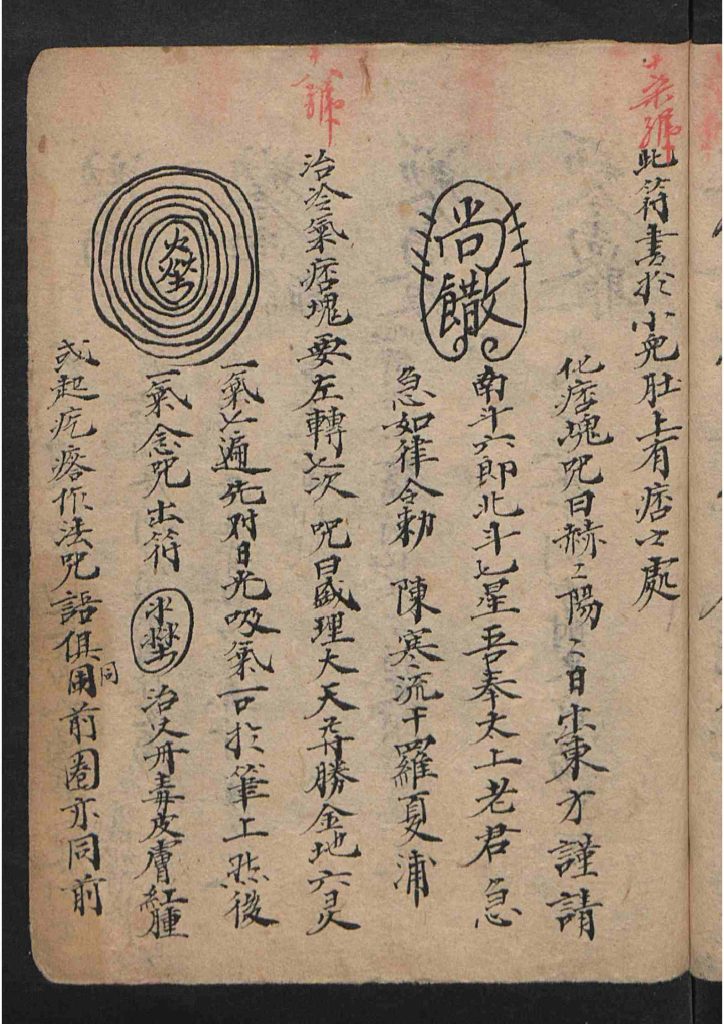 十柒號
此符書於小児肚上有痞之處
尚
化痞塊咒曰赫〻陽〻日出東方謹請
南斗六郎北斗七星吾奉太上老君急
急如律令勅 陳寒流干羅夏浦
十 號
治冷氣痞塊要左轉七次 咒曰盛理大天尊勝金地六灵
一氣七遍先对日光吸氣一口於筆上然後
一氣念咒出符 治火丹毒皮膚紅腫
或起疙瘩作法咒語俱同用前圈亦同前